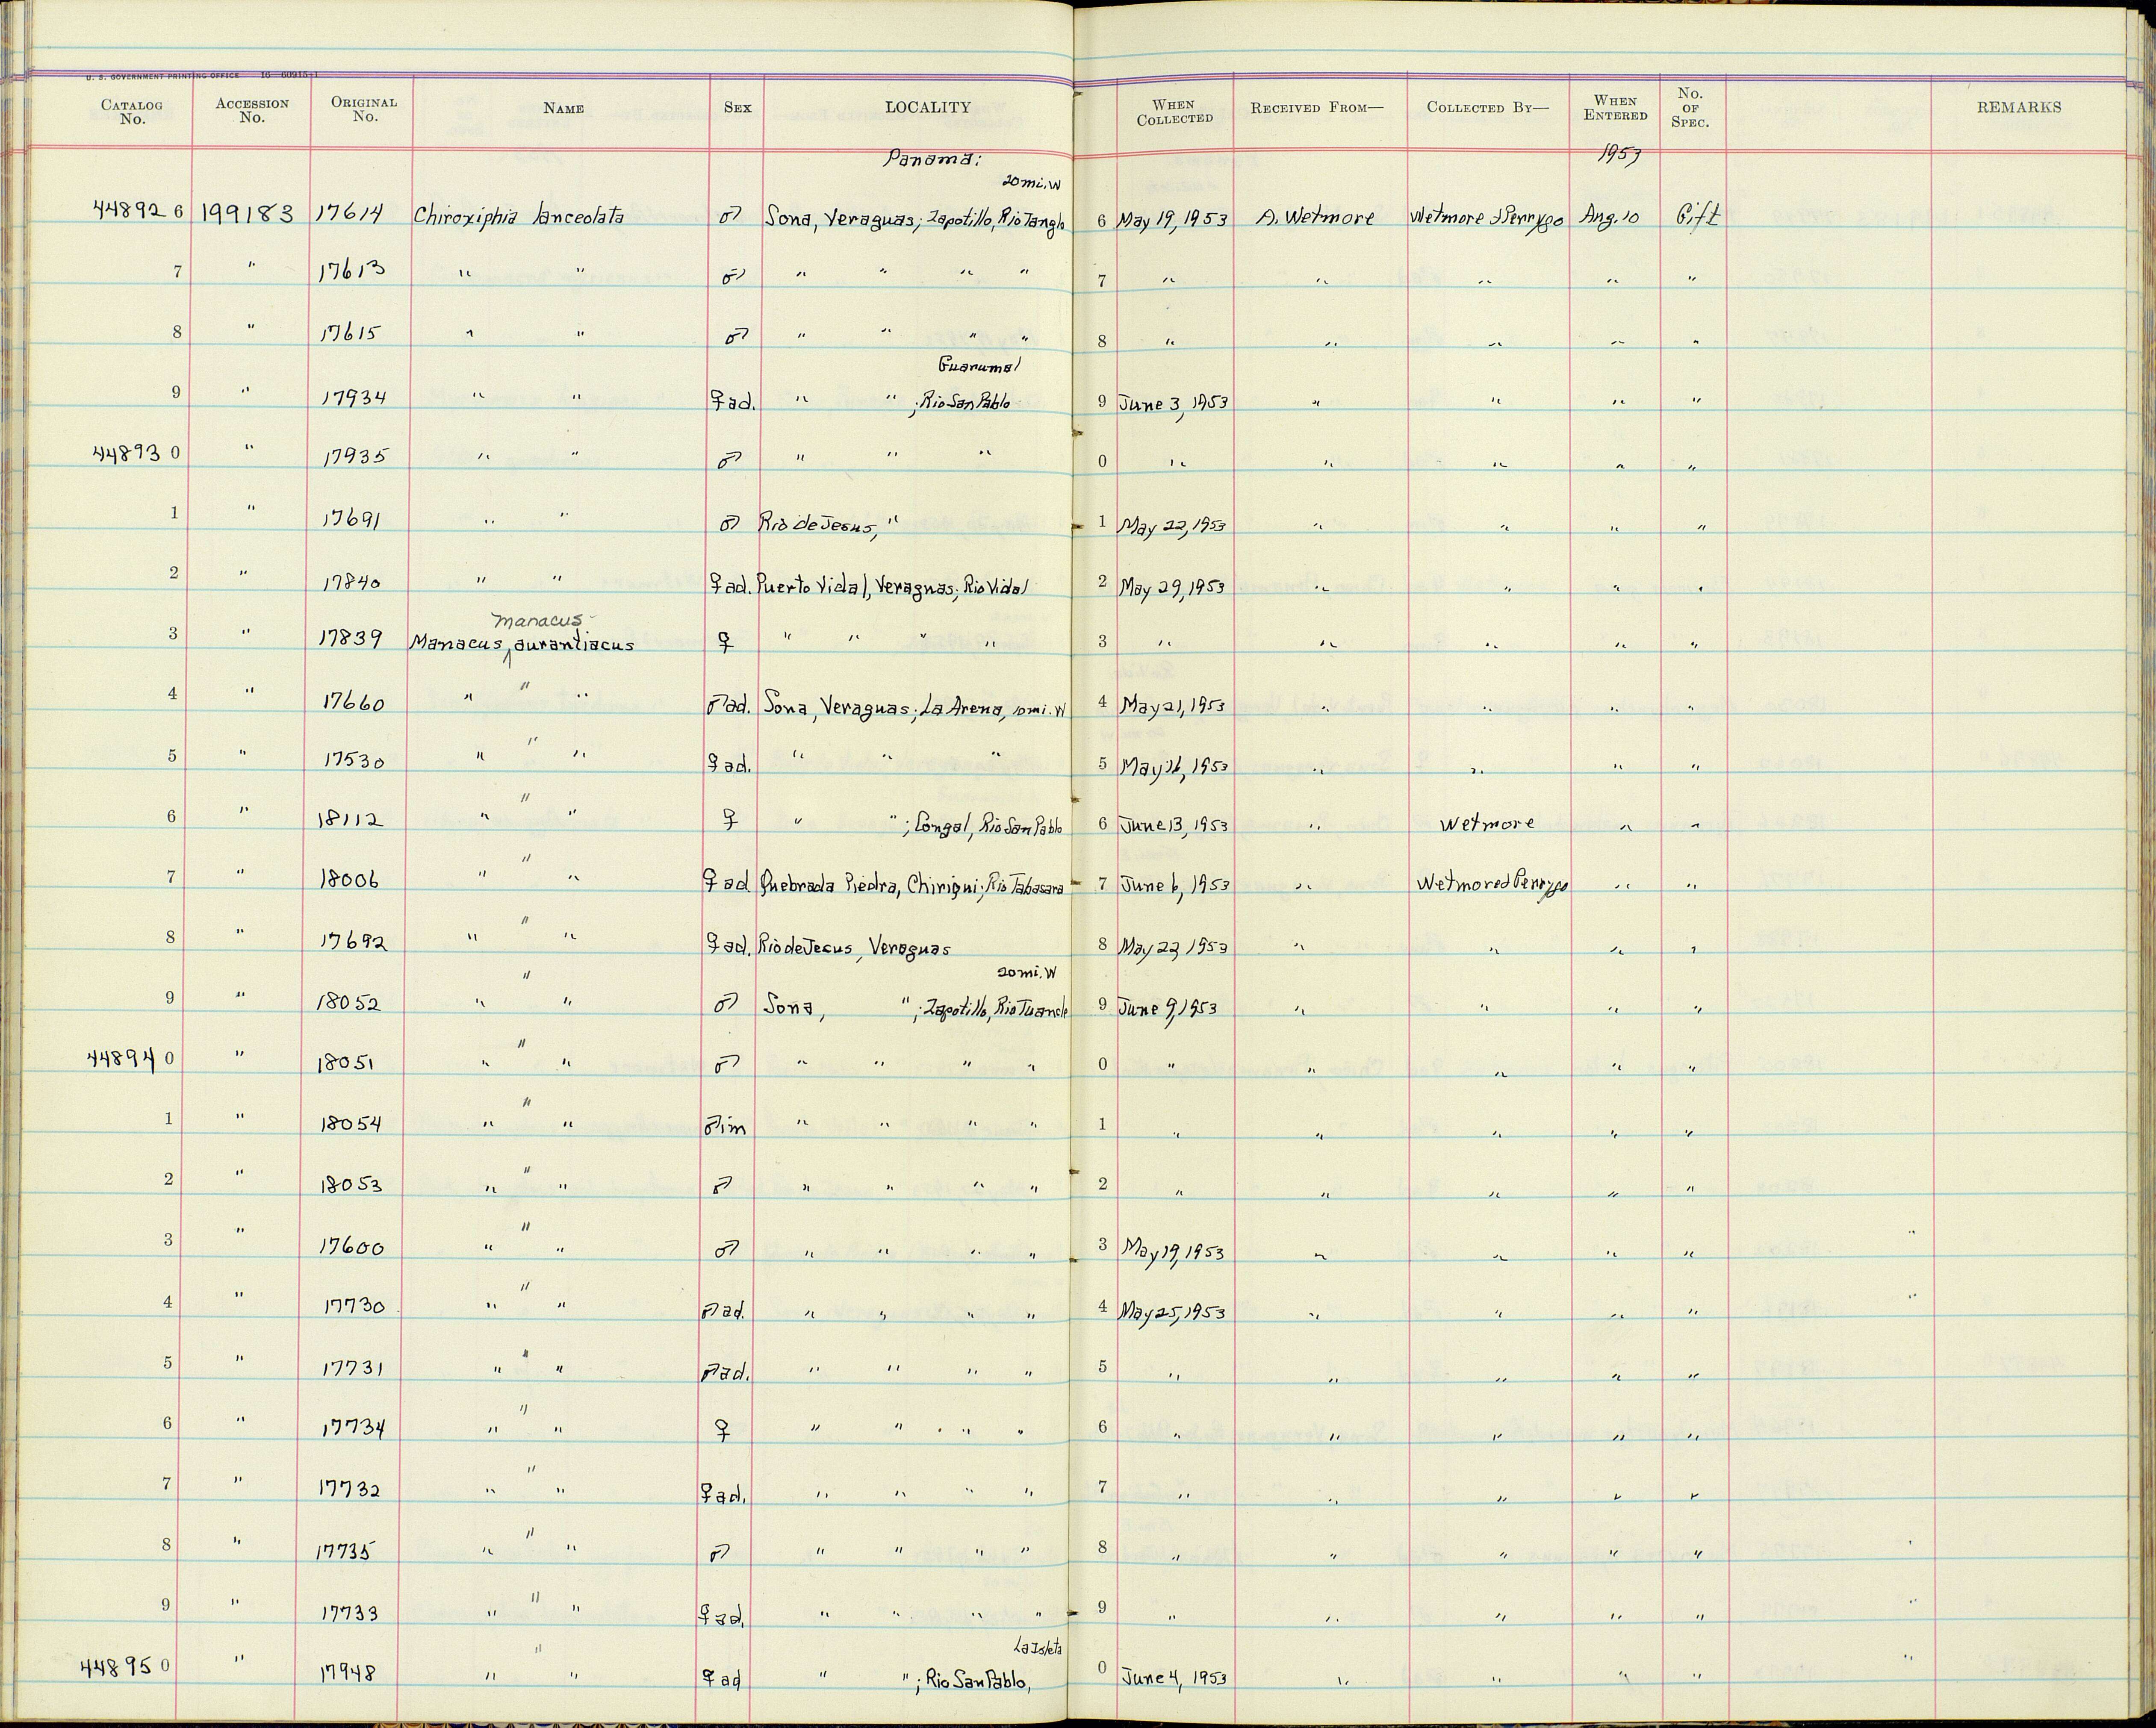 U. S. GOVERNMENT PRINTING OFFICE 16—60915-1
CATALOG No. ACCESSION No. ORIGINAL No. NAME SEX LOCALITY WHEN COLLECTED RECEIVED FROM— COLLECTED BY— WHEN ENTERED No. OF SPEC. REMARKS
Panama: 1953
20 mi. W
44892 6 199183 17614 Chiroxiphia lanceolata ♂ Sona, Veraguas; Zapotillo, Rio 6 May 19, 1953 A. Wetmore Wetmore & Perrygo Aug. 10 Gift
7 " 17613 " " ♂ " " " " 7 " " " " "
8 " 17615 " " ♂ " " " " 8 " " " " "
Guarumal
9 " 17934 " " ♀ ad. " " ; Rio San Pablo 9 June 3, 1953 " " " "
44893 0 " 17935 " " ♂ " " " 0 " " " " "
1 " 17691 " " ♂ Rio de Jesus, " 1 May 22, 1953 " " " "
2 " 17840 " " ♀ ad. Puerto Vidal, Veraguas; Rio Vidal 2 May 29, 1953 " " " "
manacus
3 " 17839 Manacus aurantiacus ♀ " " " " 3 " " " " "
4 " 17660 " " " ♂ ad. Sona, Veraguas; La Arena, 10 mi. W 4 May 21, 1953 " " " "
5 " 17530 " " " ♀ ad. " " " 5 May 16, 1953 " " " "
6 " 18112 " " " ♀ " " ; Longal, Rio San Pablo 6 June 13, 1953 " Wetmore " "
7 " 18006 " " " ♀ ad Quebrada Piedra, Chiriqui; Rio Tabasara 7 June 6, 1953 " Wetmore & Perrygo " "
8 " 17692 " " " ♀ ad. Rio de Jesus, Veraguas 8 May 22, 1953 " " " "
20 mi. W
9 " 18052 " " " ♂ Sona, " ; Zapotillo, Rio 9 June 9, 1953 " " " "
44894 0 " 18051 " " " ♂ " " " " 0 " " " " "
1 " 18054 " " " ♂ im " " " " 1 " " " " "
2 " 18053 " " " ♂ " " " " 2 " " " " "
3 " 17600 " " " ♂ " " " " 3 May 19, 1953 " " " "
4 " 17730 " " " ♂ ad. " " " " 4 May 25, 1953 " " " "
5 " 17731 " " " ♂ ad. " " " " 5 " " " " "
6 " 17734 " " " ♀ " " " " 6 " " " " "
7 " 17732 " " " ♀ ad. " " " " 7 " " " " "
8 " 17735 " " " ♂ " " " " 8 " " " " "
9 " 17733 " " " ♀ ad. " " " " 9 " " " " "
La Isleta
44895 0 " 17948 " " " ♀ ad " " ; Rio San Pablo, 0 June 4, 1953 " " " "